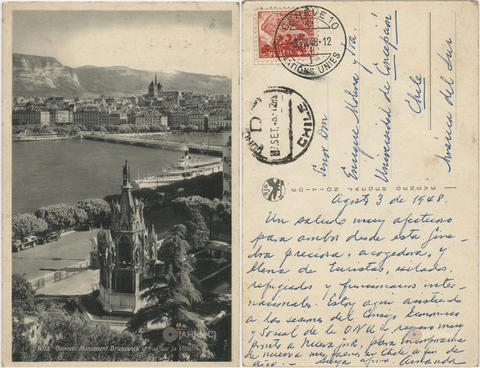 6093 Genève. Monument Brunswick et vue sur la Ville
GENÈVE 10
-12
NATIONS UNIES
CHILE
Señor Don
Enrique Molina y Sra.
Universidad de Concepción
Chile
América del Sur
EDITION JAEGER GENÈVE
Agosto 3 de 1948.
Un saludo muy afectuoso
para ambos desde esta Gine-
bra preciosa, acogedora, y
llena de turistas, exilados,
refugiados y funcionarios inter-
nacionales. Estoy aquí asistiendo
a las sesiones del Consejo Económico
y Social de la O.N.U. y regreso muy
pronto a Nueva York, para
de nuevo Chile a fin de
año.- Suyo afmo. Armando